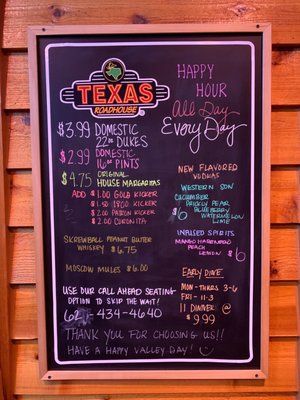 TEXAS
ROADHOUSE
HAPPY
HOUR
All Day
Every Day
$3.99 DOMESTIC
22oz DUKES
$2.99 DOMESTIC
16oz PINTS
$4.75 ORIGINAL
HOUSE MARGARITAS
ADD $1.00 GOLD KICKER
$1.50 1800 KICKER
$2.00 PATRON KICKER
$2.00 CORONITA
SKREWBALL PEANUT BUTTER
WHISKEY $6.75
MOSCOW MULES $6.00
USE OUR CALL AHEAD SEATING
OPTION TO SKIP THE WAIT!
434-4640
THANK YOU FOR CHOOSING US!!
HAVE A HAPPY VALLEY DAY!
NEW FLAVORED
VODKAS
WESTERN SON
CUCUMBER
PRICKLY PEAR
BLUEBERRY
WATERMELON
LIME
$6
INFUSED SPIRITS
MANGO HABANERO
PEACH
LEMON
$6
EARLY DINE
MON-THURS 3-6
FRI-11-3
11 DINNER @
$9.99